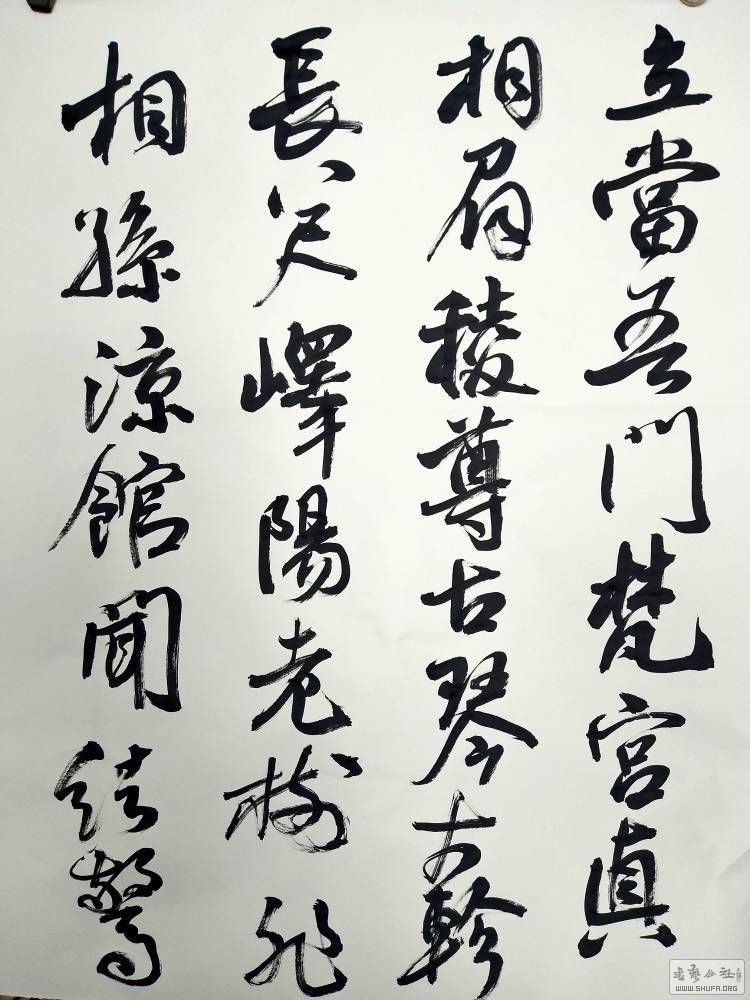 立當吾門梵宮真
相眉稜尊古琴大軫
長八尺嶧陽老樹非
桐孫涼館聞絃驚
WWW.SHUFA.ORG